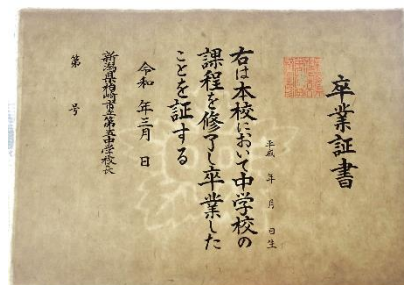 卒業証書
平成 年 月 日生
右は本校において中学校の
課程を修了し卒業した
ことを証する
令和 年三月 日
新潟県柏崎市立第五中学校長
第 号